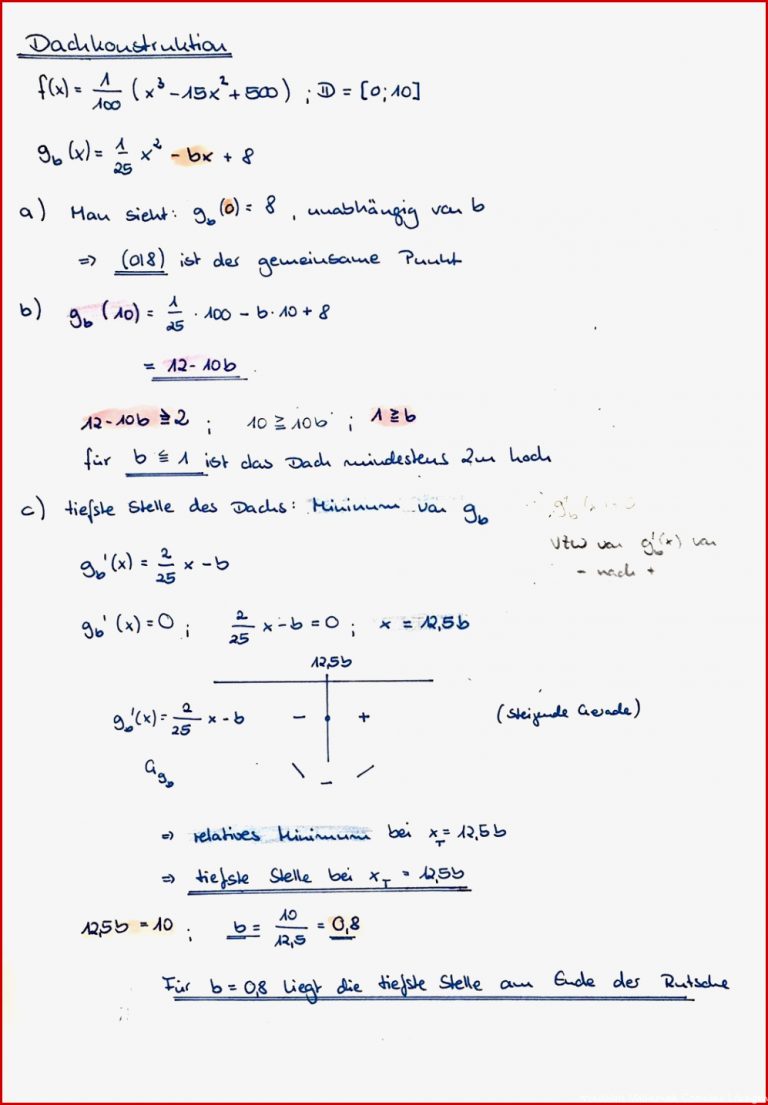 Dachkonstruktion
f(x) = 1/100 (x³ - 15x² + 500) ; D = [0; 10]
g_b(x) = 1/25 x² - bx + 8
a) Man sieht: g_b(0) = 8 , unabhängig von b
⇒ (0|8) ist der gemeinsame Punkt
b) g_b(10) = 1/25 · 100 - b · 10 + 8
= 12 - 10b
12 - 10b ≧ 2 ; 10 ≧ 10b ; 1 ≧ b
für b ≦ 1 ist das Dach mindestens 2m hoch
c) tiefste Stelle des Dachs: Minimum von g_b
VZW von g_b'(x) von
- nach +
g_b'(x) = 2/25 x - b
g_b'(x) = 0 ; 2/25 x - b = 0 ; x = 12,5b
12,5b
g_b'(x) = 2/25 x - b - + (steigende Gerade)
G_g_b \ _ /
⇒ relatives Minimum bei x_T = 12,5b
⇒ tiefste Stelle bei x_T = 12,5b
12,5b = 10 ; b = 10/12,5 = 0,8
Für b = 0,8 liegt die tiefste Stelle am Ende der Rutsche